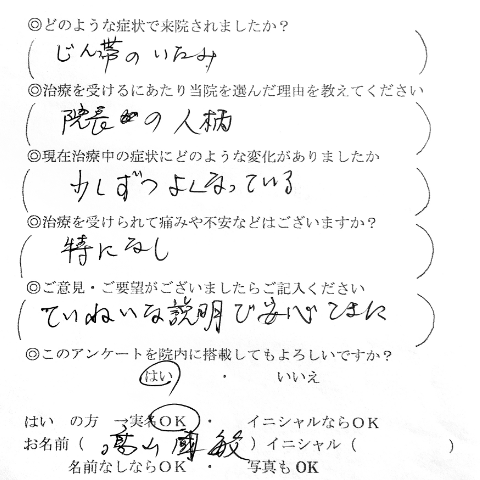 ◎どのような症状で来院されましたか?
(じん帯のいたみ)
◎治療を受けるにあたり当院を選んだ理由を教えてください
(院長の人柄)
◎現在治療中の症状にどのような変化がありましたか
(少しずつよくなっている)
◎治療を受けられて痛みや不安などはございますか?
(特になし)
◎ご意見・ご要望がございましたらご記入ください
(ていねいな説明で安心できました)
◎このアンケートを院内に搭載してもよろしいですか?
はい ・ いいえ
はい の方 →実名OK ・ イニシャルならOK
お名前(高山 敏)イニシャル( )
名前なしならOK ・ 写真も OK